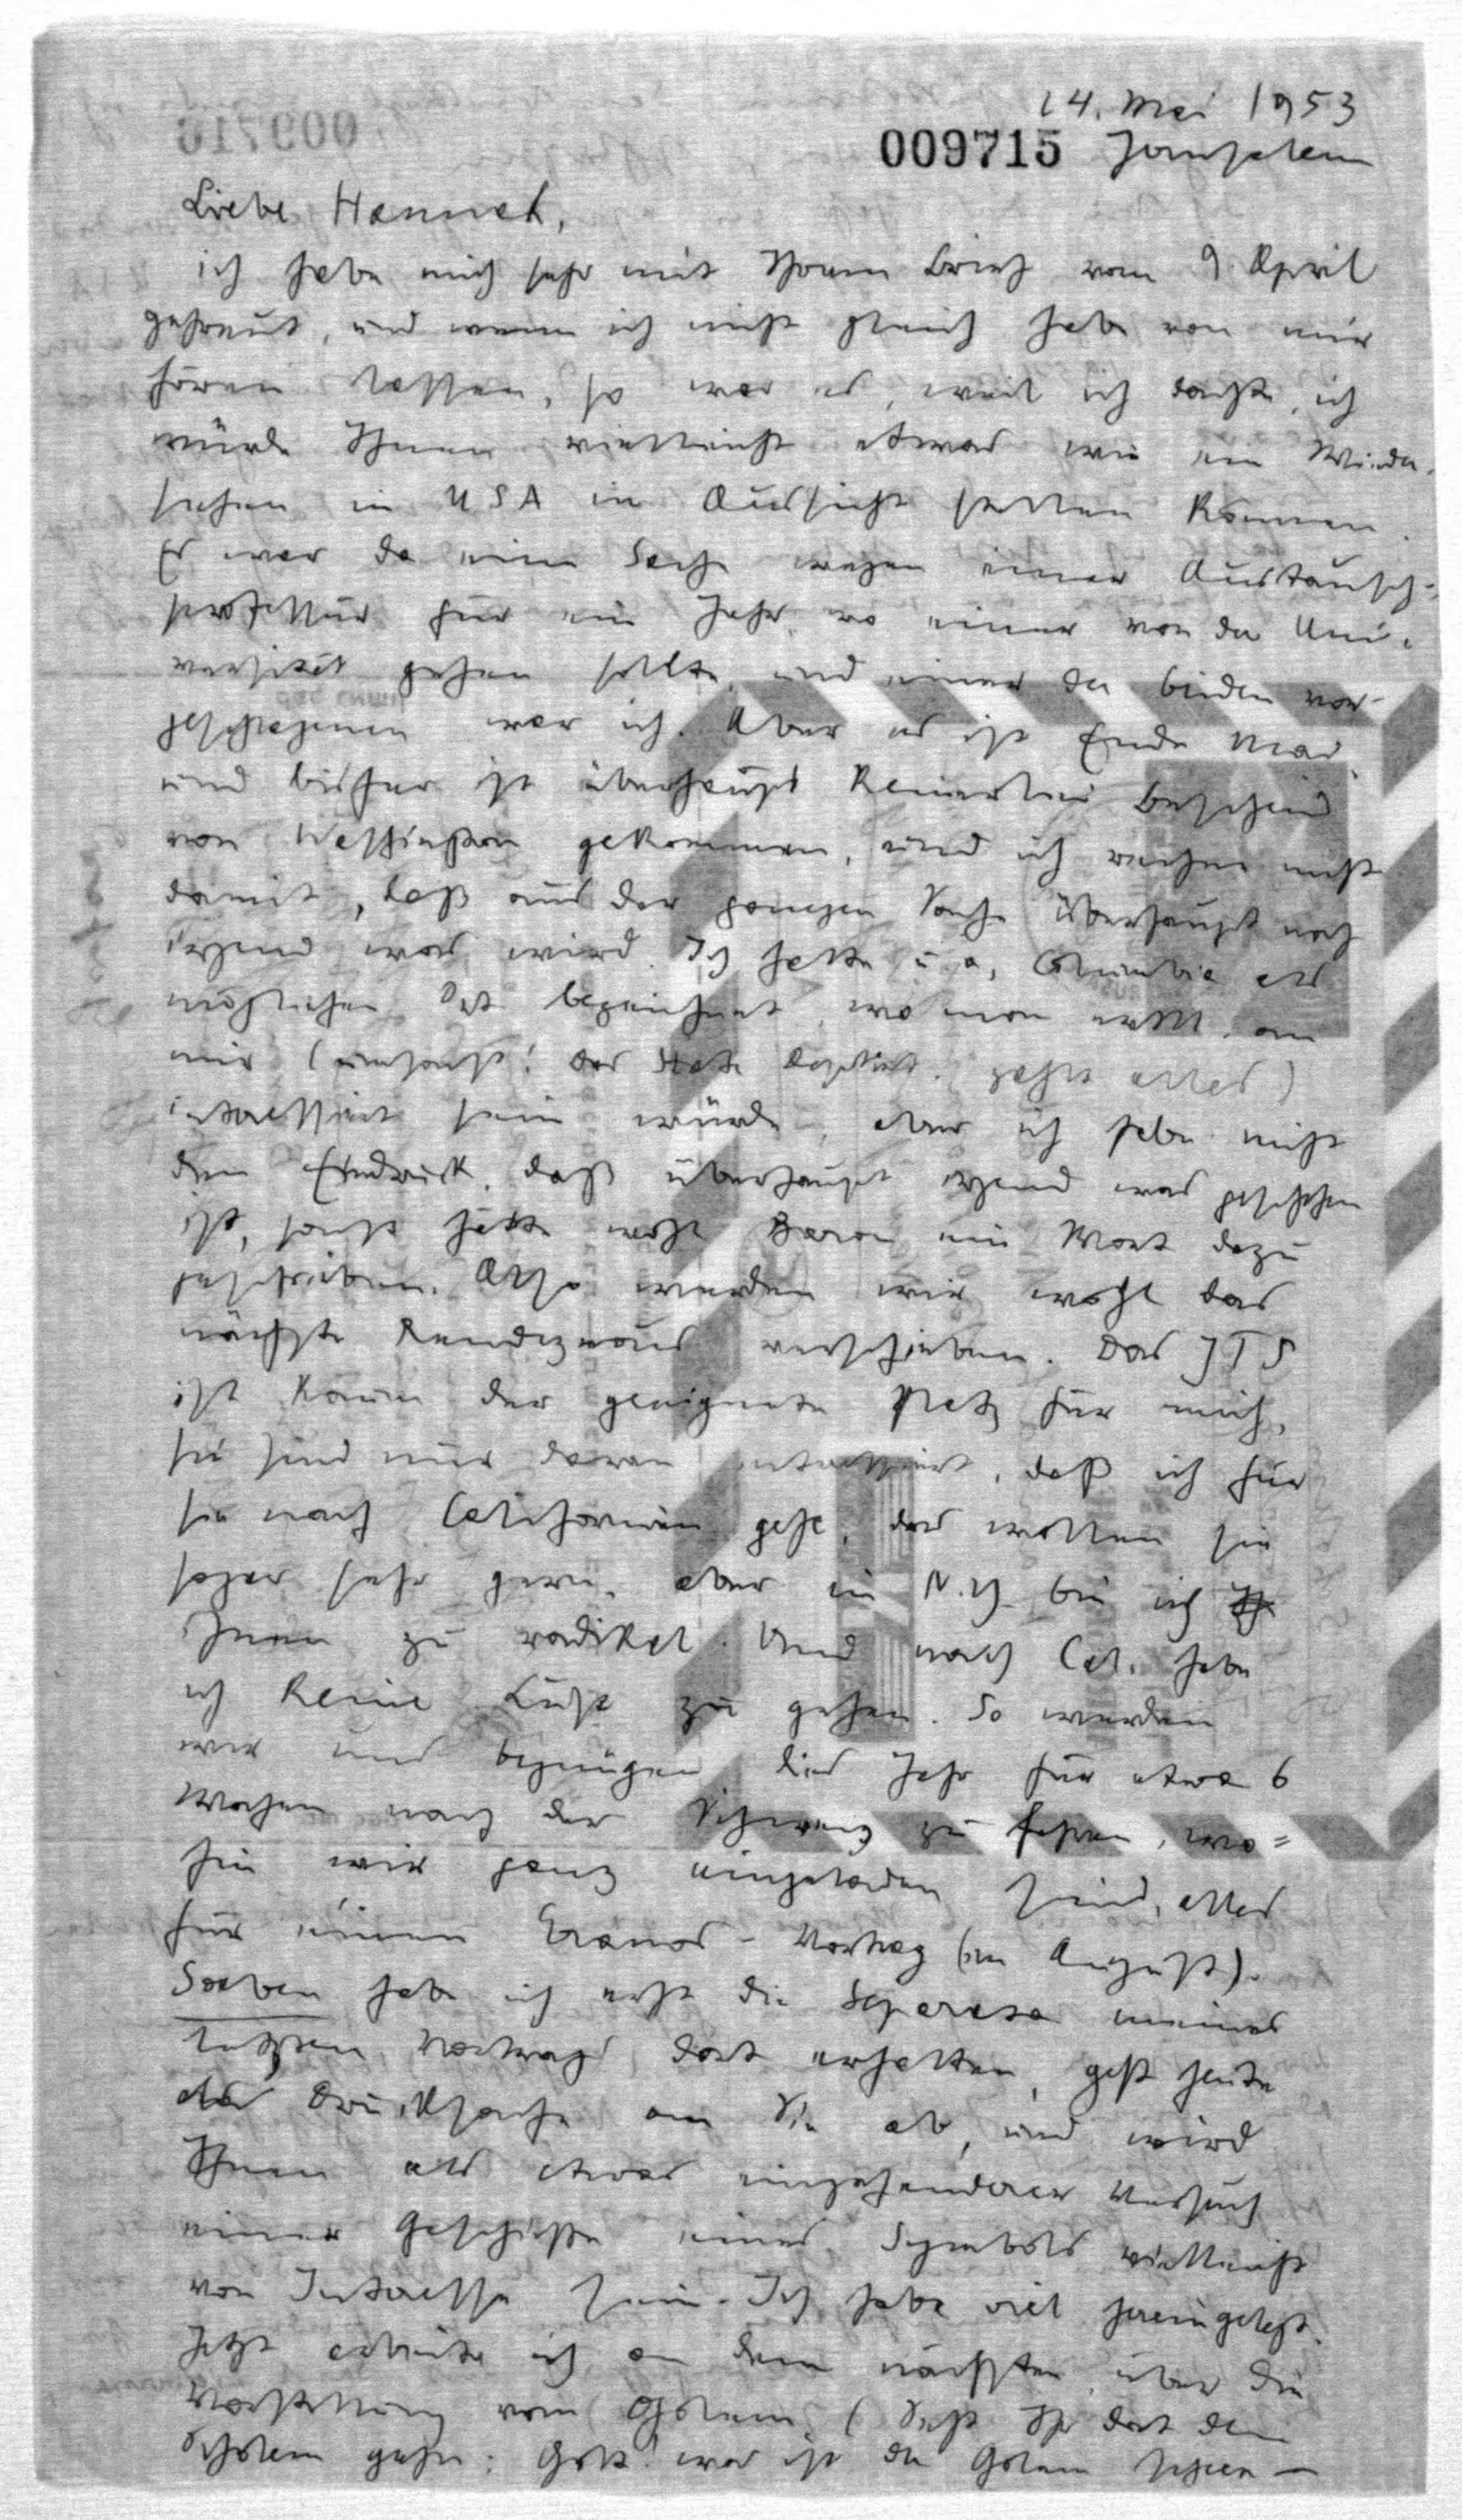 24. Mai 1953
009715 Jerusalem
Liebe Hannah,
ich habe mich sehr mit Ihrem Brief vom 9. April
gefreut, und wenn ich nicht gleich habe von mir
hören lassen, so war es, weil ich dachte, ich
würde Ihnen vielleicht etwas wie ein Wieder-
sehen in USA in Aussicht stellen können.
Es war da eine Sache wegen einer Austausch-
professur für ein Jahr, wo einer von der Uni-
versität gehen sollte, und einer der beiden vor-
geschlagenen war ich. Aber es ist Ende Mai,
und bisher ist überhaupt keinerlei Bescheid
von Washington gekommen, und ich rechne nicht
damit, daß aus der ganzen Sache überhaupt noch
irgend was wird. Ich hatte u. a. Columbia als
möglichen Ort bezeichnet, wo man evtl. an
mir (umsonst! Das State zahlt alles)
interessiert sein würde, aber ich habe nicht
den Eindruck, daß überhaupt irgend was geschehen
ist, sonst hätte wohl Baron ein Wort dazu
geschrieben. Also werden wir wohl das
nächste Rendezvous verschieben. Das JTS
ist kaum der geeignete Platz für mich,
sie sind nur daran interessiert, daß ich für
sie nach Californien gehe, das wollen sie
sogar sehr gern, aber in N.Y. bin ich
Ihnen zu radikal. Und nach Cal. habe
ich keine Lust zu gehen. So werden
wir uns begnügen dies Jahr für etwa 6
Wochen nach der Schweiz zu fahren, wo=
hin wir ganz eingeladen sind, alles
für einen Eranos-Vortrag (im August).
Soeben habe ich erst die Separata meines
letzten Vortrags dort erhalten, geht heute
als Drucksache an Sie ab, und wird
Ihnen als etwas eingehenderer Versuch
einer Geschichte eines Symbols vielleicht
von Interesse sein. Ich habe viel hereingelegt.
Jetzt arbeite ich an dem nächsten, über die
Vorstellung vom Golem. (Seht Ihr dort den
Scholem gehn: Gott! was ist der Golem schoen —